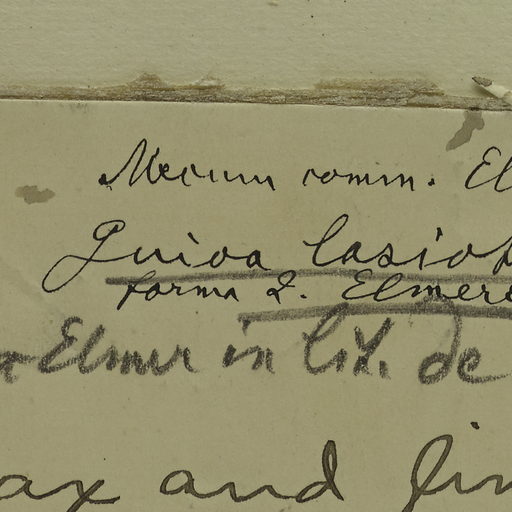 Mecum comm. El
Guioa lasiop
forma 2. Elmere
Elmer in lit. de
ax and fin